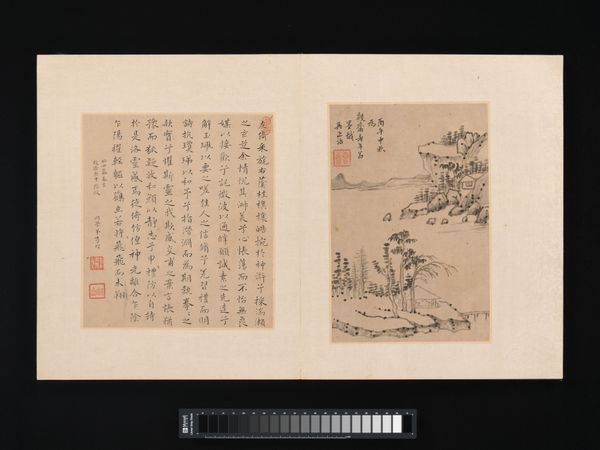 丙午中秋
為
吳山濤
左倚采旄右蔭桂旗攘皓腕於神滸兮採湍瀨
之玄芝余情悅其淑美兮心振蕩而不怡無良
媒以接歡兮託微波以通辭願誠素之先達兮
解玉珮以要之嗟佳人之信脩兮羌習禮而明
詩抗瓊珶以和予兮指潛淵而為期執眷眷之
款實兮懼斯靈之我欺感交甫之棄言悵猶
豫而狐疑收和顏以靜志兮申禮防以自持
於是洛靈感焉徙倚傍徨神光離合乍陰
乍陽擢輕軀以鶴立若將飛而未翔